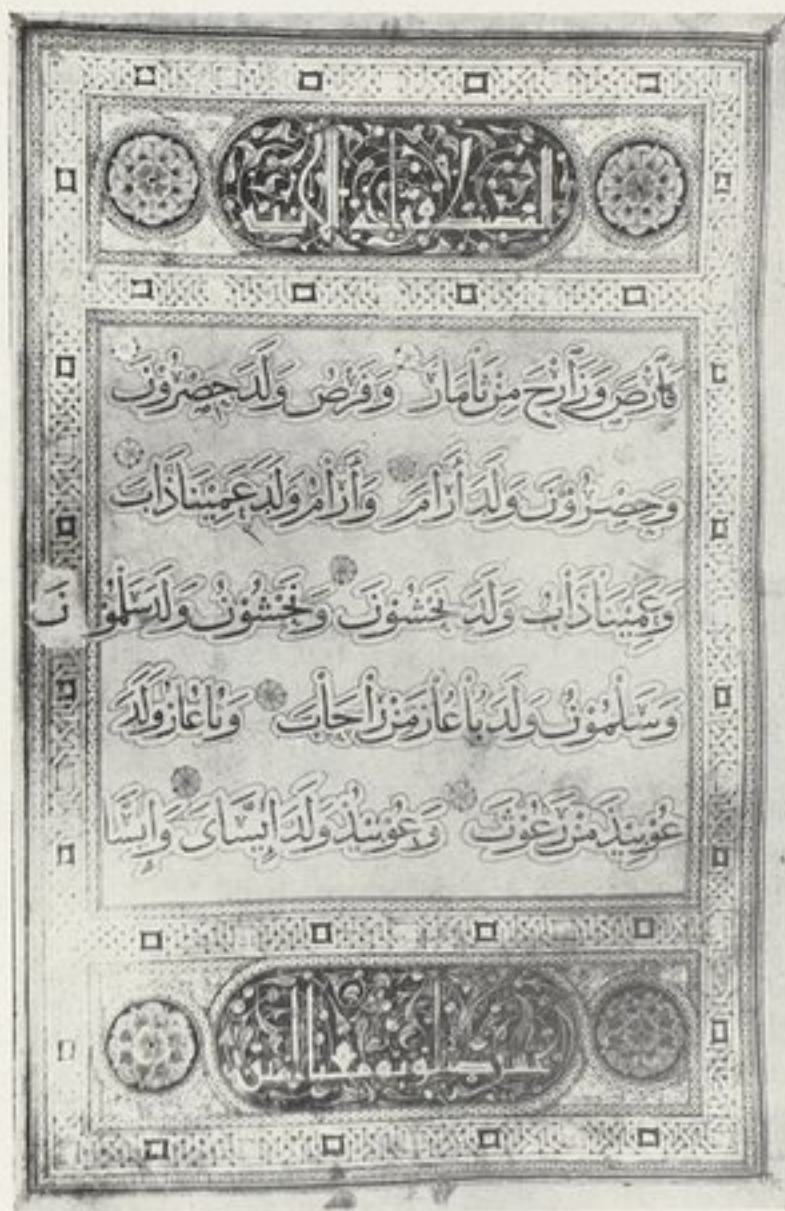 فَارَصَ وَزَارَحَ مِنْ ثَامَارَ وَفَرَصُ وَلَدَ حِصْرُونَ
وَحِصْرُونَ وَلَدَ أَرَامَ وَأَرَامُ وَلَدَ عَمِينَاذَابَ
وَعَمِينَاذَابُ وَلَدَ نَحَشُونَ وَنَحَشُونُ وَلَدَ سَلْمُونَ
وَسَلْمُونُ وَلَدَ بَاعَازَ مِنْ رَاحَابَ وَبَاعَازُ وَلَدَ
عُوبِيذَ مِنْ رَعُوثَ وَعُوبِيذُ وَلَدَ إِيسَّاىَ وَإِيسَّا